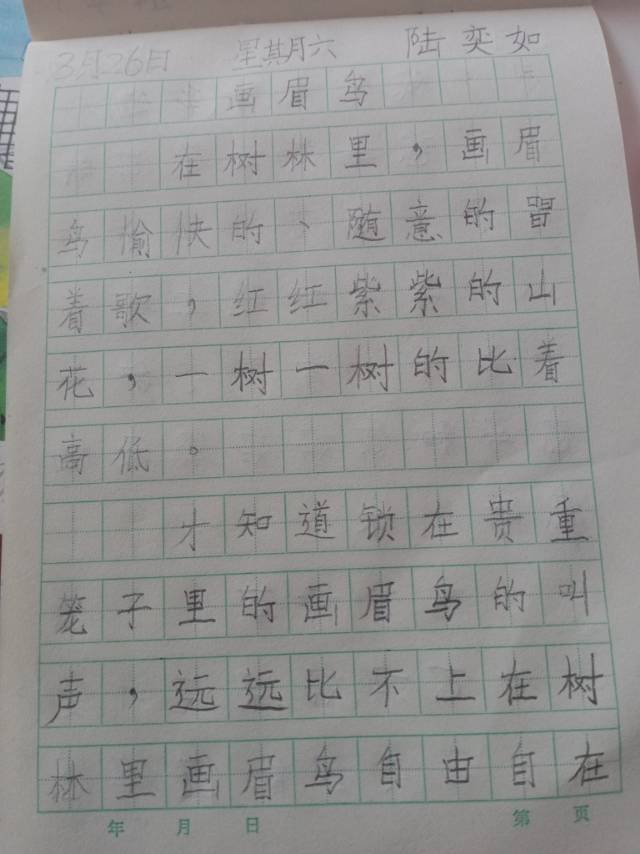 3月26日 星期六 陆奕如
画眉鸟
在树林里，画眉
鸟愉快的、随意的
着歌，红红紫紫的山
花，一树一树的比着
高低。
才知道锁在贵重
笼子里的画眉鸟的叫
声，远远比不上在树
林里画眉鸟自由自在
年 月 日 第 页